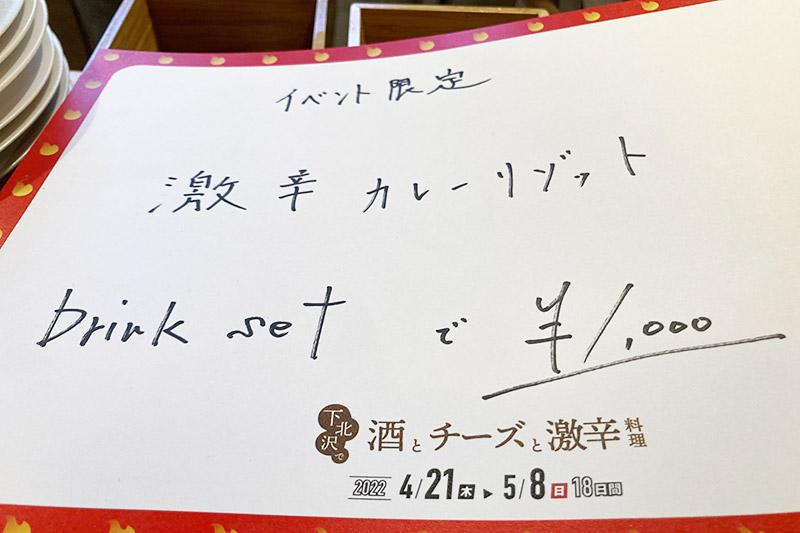 イベント限定
激辛カレーリゾット
Drink set で ¥1,000
下北沢で 酒とチーズと激辛料理
2022 4/21木▶5/8日18日間